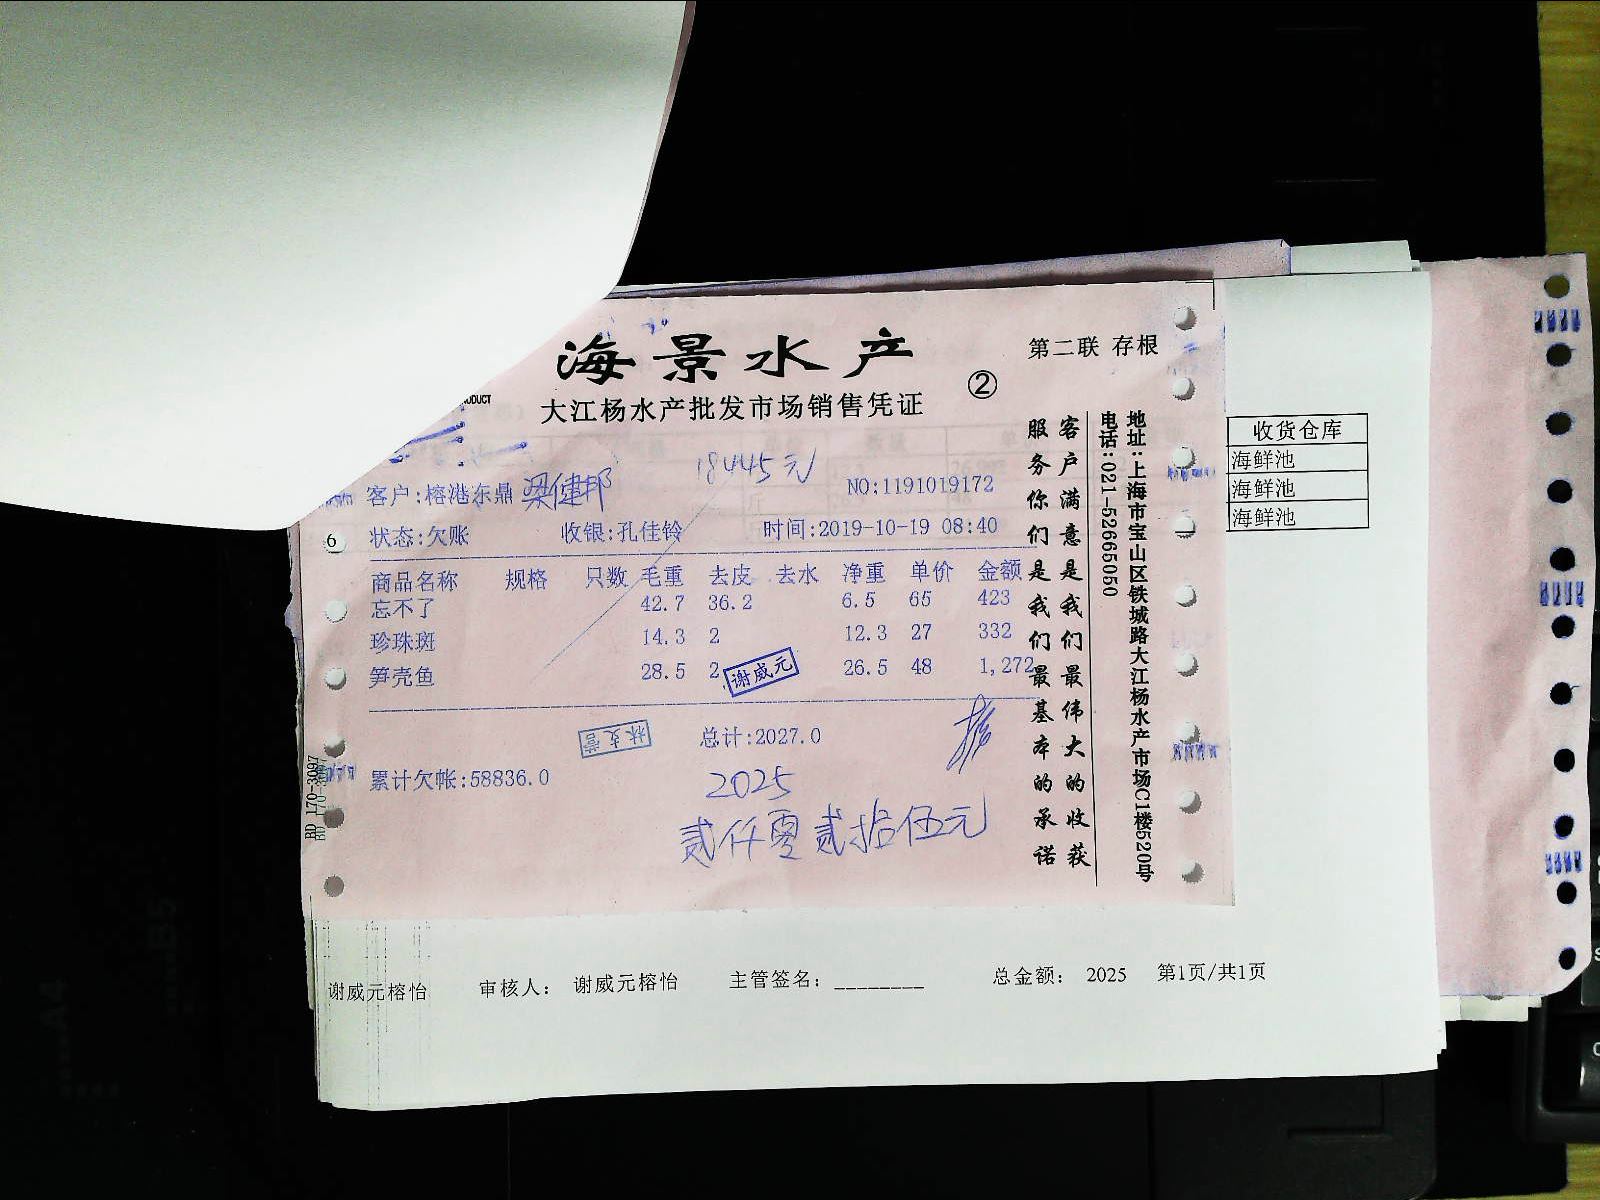 海景水产
第二联 存根
②
大江杨水产批发市场销售凭证
18445元
客户:榕港东鼎 梁健邦
NO:1191019172
状态:欠账 收银:孔佳铃 时间:2019-10-19 08:40
商品名称 规格 只数 毛重 去皮 去水 净重 单价 金额
忘不了 42.7 36.2 6.5 65 423
珍珠斑 14.3 2 12.3 27 332
笋壳鱼 28.5 2 26.5 48 1,272
谢威元
总计:2027.0
累计欠帐:58836.0
2025
贰仟零贰拾伍元
客户满意是我们最伟大的收获
服务你们是我们最基本的承诺
地址:上海市宝山区铁城路大江杨水产市场C1楼520号
电话:021-52665050
6
BD 170-3097
收货仓库
海鲜池
海鲜池
海鲜池
谢威元榕怡 审核人: 谢威元榕怡 主管签名:________ 总金额: 2025 第1页/共1页